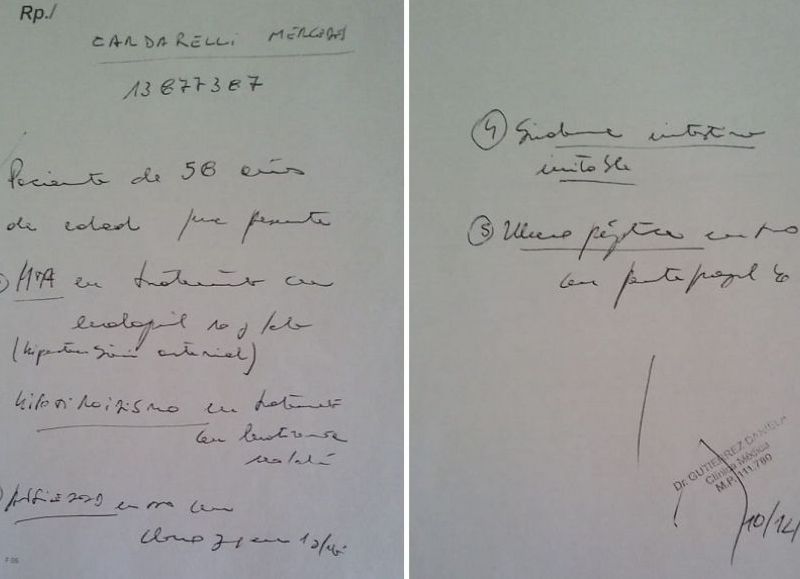 Rp./
CARDARELLI MERCEDES
13877387
Paciente de 58 años
de edad que presenta
HTA en tratamiento con
enalapril 10 g/
(hipertensión arterial)
HIPOTIROIDISMO en tratamiento
con
en tto con
④ Síndrome intestino
irritable
⑤ Ulcera péptica en tto
con
Dr. GUTIERREZ DANIELA
Clínica Médica
M.P. 111.780
10/12
F 05